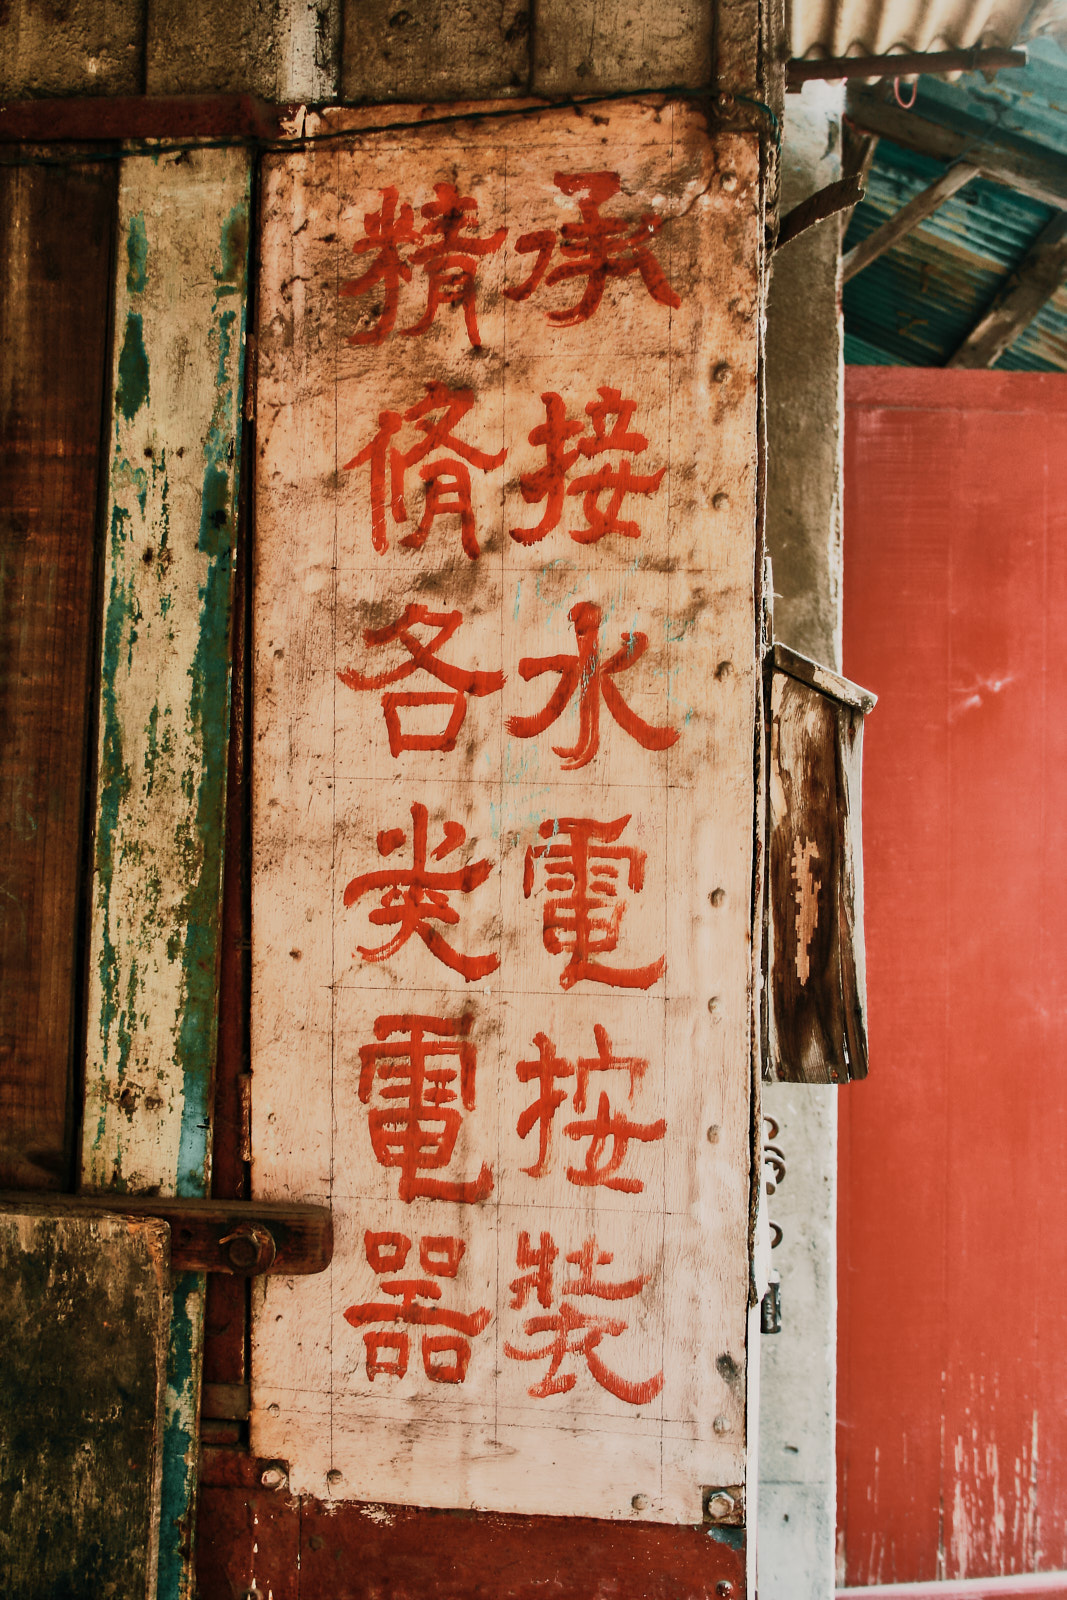 承接水電按裝
精脩各类電器